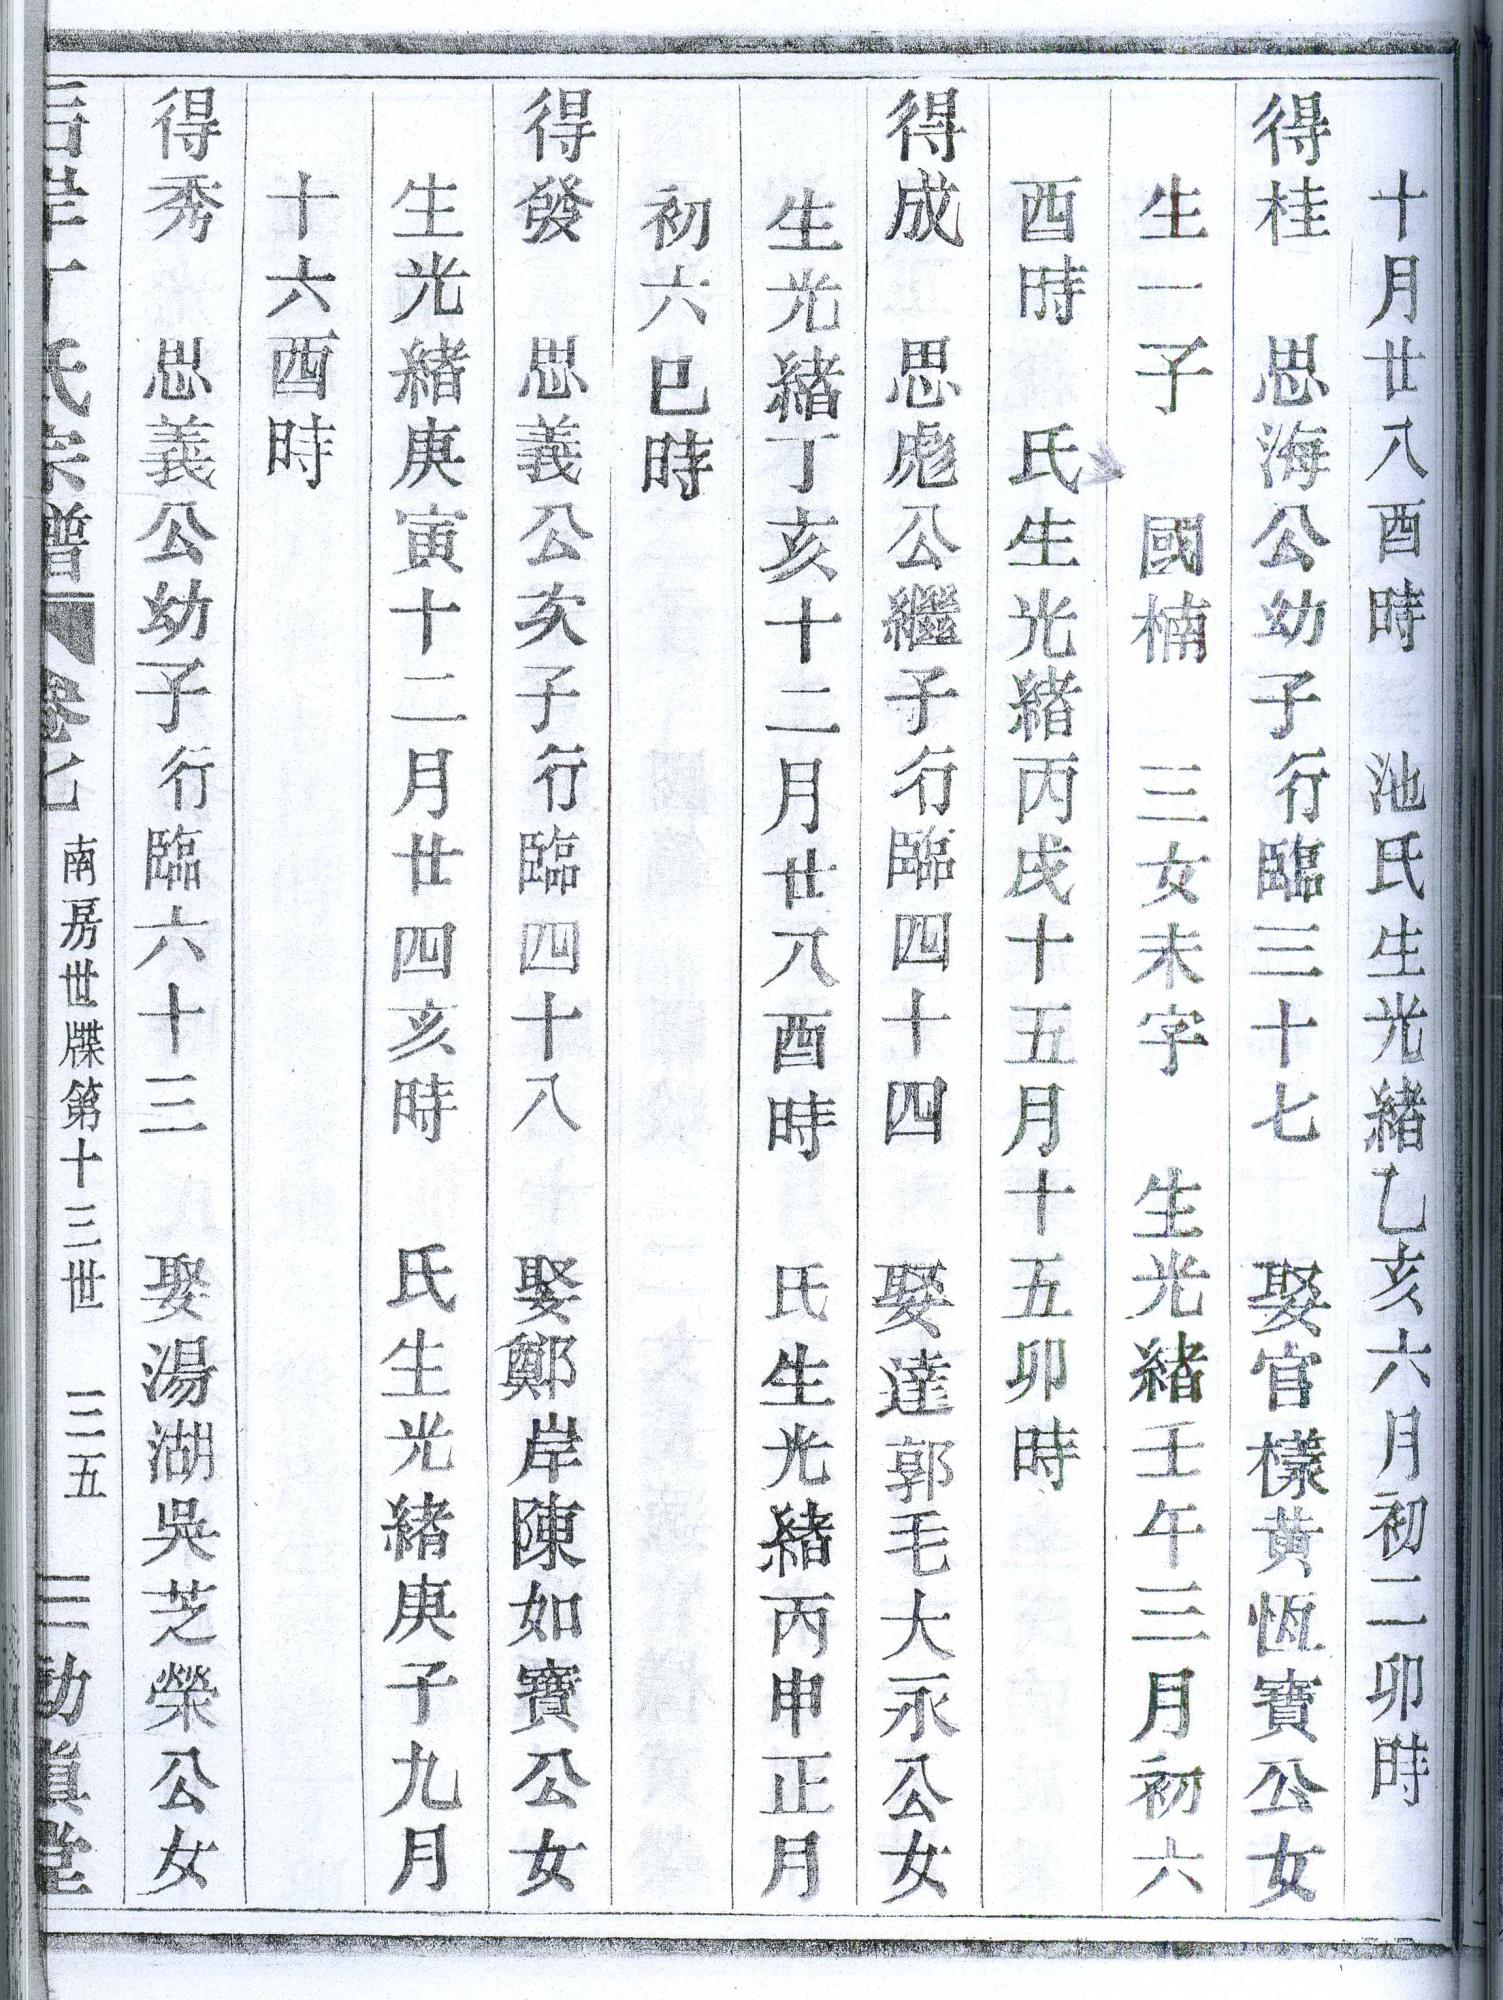 十月廿八酉時　池氏生光緒乙亥六月初二卯時
得桂　思海公幼子行臨三十七　娶官樣黃恆寶公女
生一子　國楠　三女未字　生光緒壬午三月初六
酉時　氏生光緒丙戌十五月十五卯時
得成　思彪公繼子行臨四十四　娶達郭毛大永公女
生光緒丁亥十二月廿八酉時　氏生光緒丙申正月
初六巳時
得發　思義公次子行臨四十八　娶鄭岸陳如寶公女
生光緒庚寅十二月廿四亥時　氏生光緒庚子九月
十六酉時
得秀　思義公幼子行臨六十三　娶湯湖吳芝榮公女
氏宗譜　卷七　南房世牒第十三世　三二五